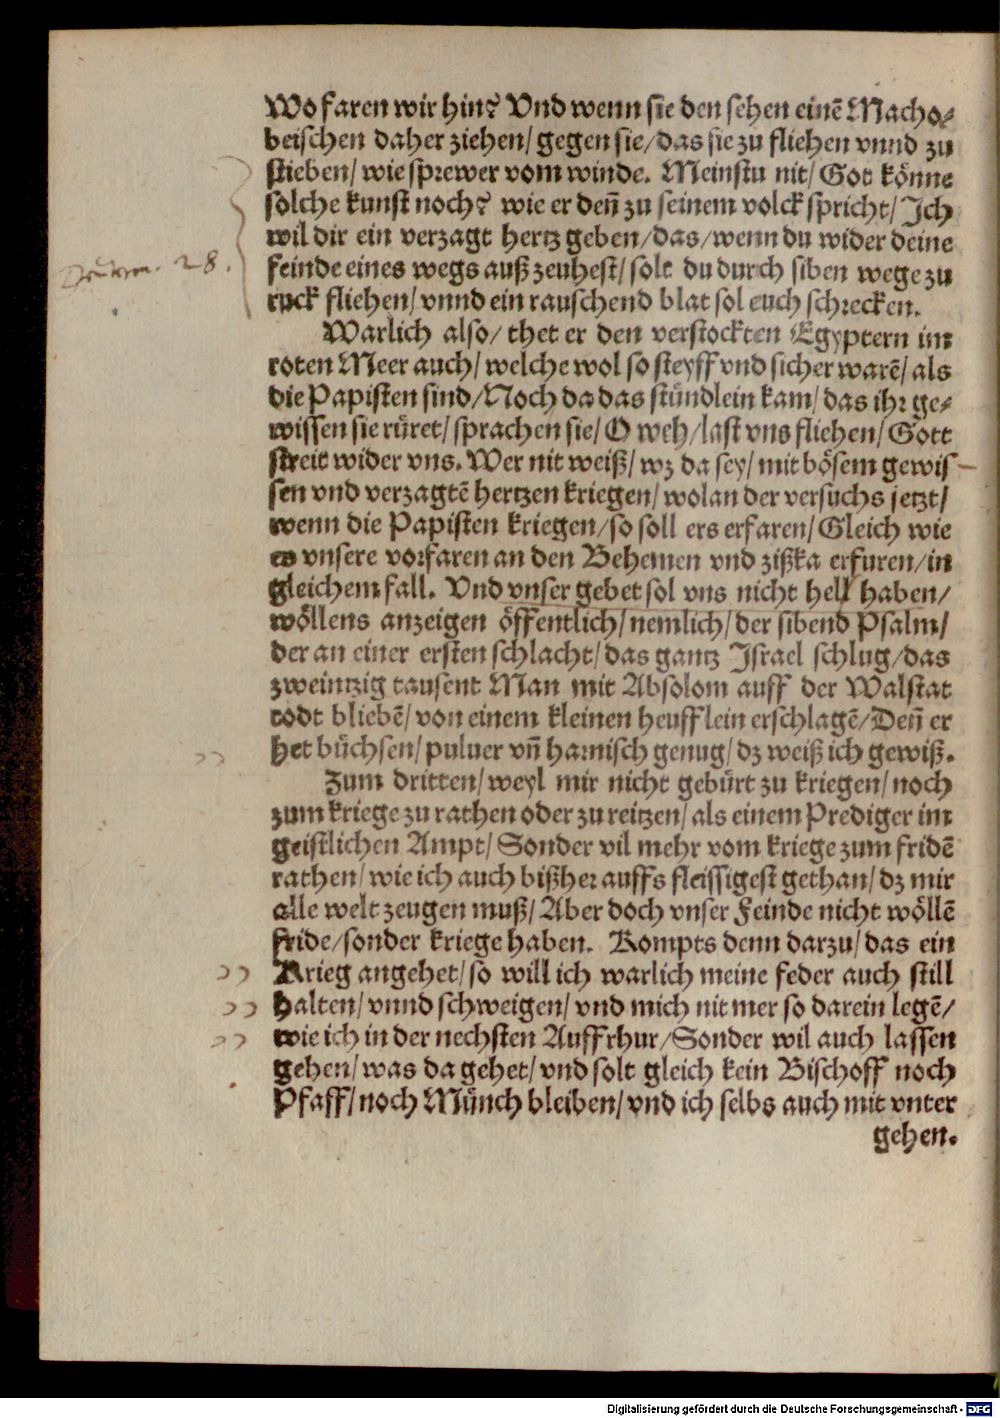 Wo faren wir hin? Vnd wenn sie den sehen einē Macho⸗
beischen daher ziehen/ gegen sie/ das sie zu fliehen vnnd zu
stieben/ wie sprewer vom winde. Meinstu nit/ Got könne
solche kunst noch? wie er deñ zu seinem volck spricht/ Jch
wil dir ein verzagt hertz geben/ das/ wenn du wider deine
feinde eines wegs auß zeuhest/ solt du durch siben wege zu
ruck fliehen/ vnnd ein rauschend blat sol euch schrecken.
28.
Warlich also/ thet er den verstockten Egyptern im
roten Meer auch/ welche wol so steyff vnd sicher warē/ als
die Papisten sind/ Noch da das stündlein kam/ das ihr ge⸗
wissen sie rüret/ sprachen sie/ O weh/ last vns fliehen/ Gott
streit wider vns. Wer nit weiß/ wz da sey/ mit bösem gewis
sen vnd verzagtē hertzen kriegen/ wolan der versuchs jetzt/
wenn die Papisten kriegen/ so soll ers erfaren/ Gleich wie
es vnsere vorfaren an den Behemen vnd zißka erfuren/ in
gleichem fall. Vnd vnser gebet sol vns nicht hell haben/
wöllens anzeigen öffentlich/ nemlich/ der sibend Psalm/
der an einer ersten schlacht/ das gantz Jsrael schlug/ das
zweintzig tausent Man mit Absolom auff der Walstat
todt bliebē/ von einem kleinen heufflein erschlagē/ Deñ er
het büchsen/ puluer vñ harnisch genug/ dz weiß ich gewiß.
Zum dritten/ weyl mir nicht gebürt zu kriegen/ noch
zum kriege zu rathen oder zu reitzen/ als einem Prediger im
geistlichen Ampt/ Sonder vil mehr vom kriege zum fridē
rathen/ wie ich auch bißher auffs fleissigest gethan/ dz mir
alle welt zeugen muß/ Aber doch vnser Feinde nicht wöllē
fride/ sonder kriege haben. Kompts denn darzu/ das ein
Krieg angehet/ so will ich warlich meine feder auch still
halten/ vnnd schweigen/ vnd mich nit mer so darein legē/
wie ich in der nechsten Auffrhur/ Sonder wil auch lassen
gehen/ was da gehet/ vnd solt gleich kein Bischoff noch
Pfaff/ noch Münch bleiben/ vnd ich selbs auch mit vnter
gehen.
Digitalisierung gefördert durch die Deutsche Forschungsgemeinschaft - DFG